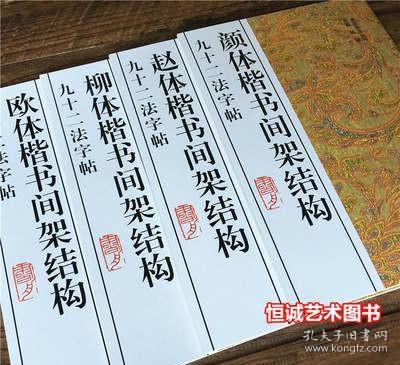 颜体楷书间架结构
九十二法字帖
赵体楷书间架结构
九十二法字帖
柳体楷书间架结构
九十二法字帖
欧体楷书间架结构
二法字帖
恒诚艺术图书
孔夫子旧书网
www.kongfz.com